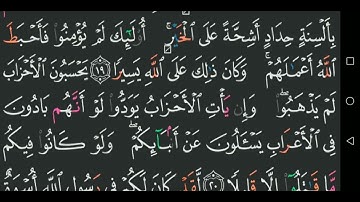 بِأَلْسِنَةٍ حِدَادٍ أَشِحَّةً عَلَى الْخَيْرِ ۚ أُولَٰئِكَ لَمْ يُؤْمِنُوا فَأَحْبَطَ
اللَّهُ أَعْمَالَهُمْ ۚ وَكَانَ ذَٰلِكَ عَلَى اللَّهِ يَسِيرًا ﴿١٩﴾ يَحْسَبُونَ الْأَحْزَابَ
لَمْ يَذْهَبُوا ۖ وَإِن يَأْتِ الْأَحْزَابُ يَوَدُّوا لَوْ أَنَّهُم بَادُونَ
فِى الْأَعْرَابِ يَسْأَلُونَ عَنْ أَنبَائِكُمْ ۖ وَلَوْ كَانُوا فِيكُم
مَّا قَاتَلُوا إِلَّا قَلِيلًا ﴿٢٠﴾ لَّقَدْ كَانَ لَكُمْ فِى رَسُولِ اللَّهِ أُسْوَةٌ